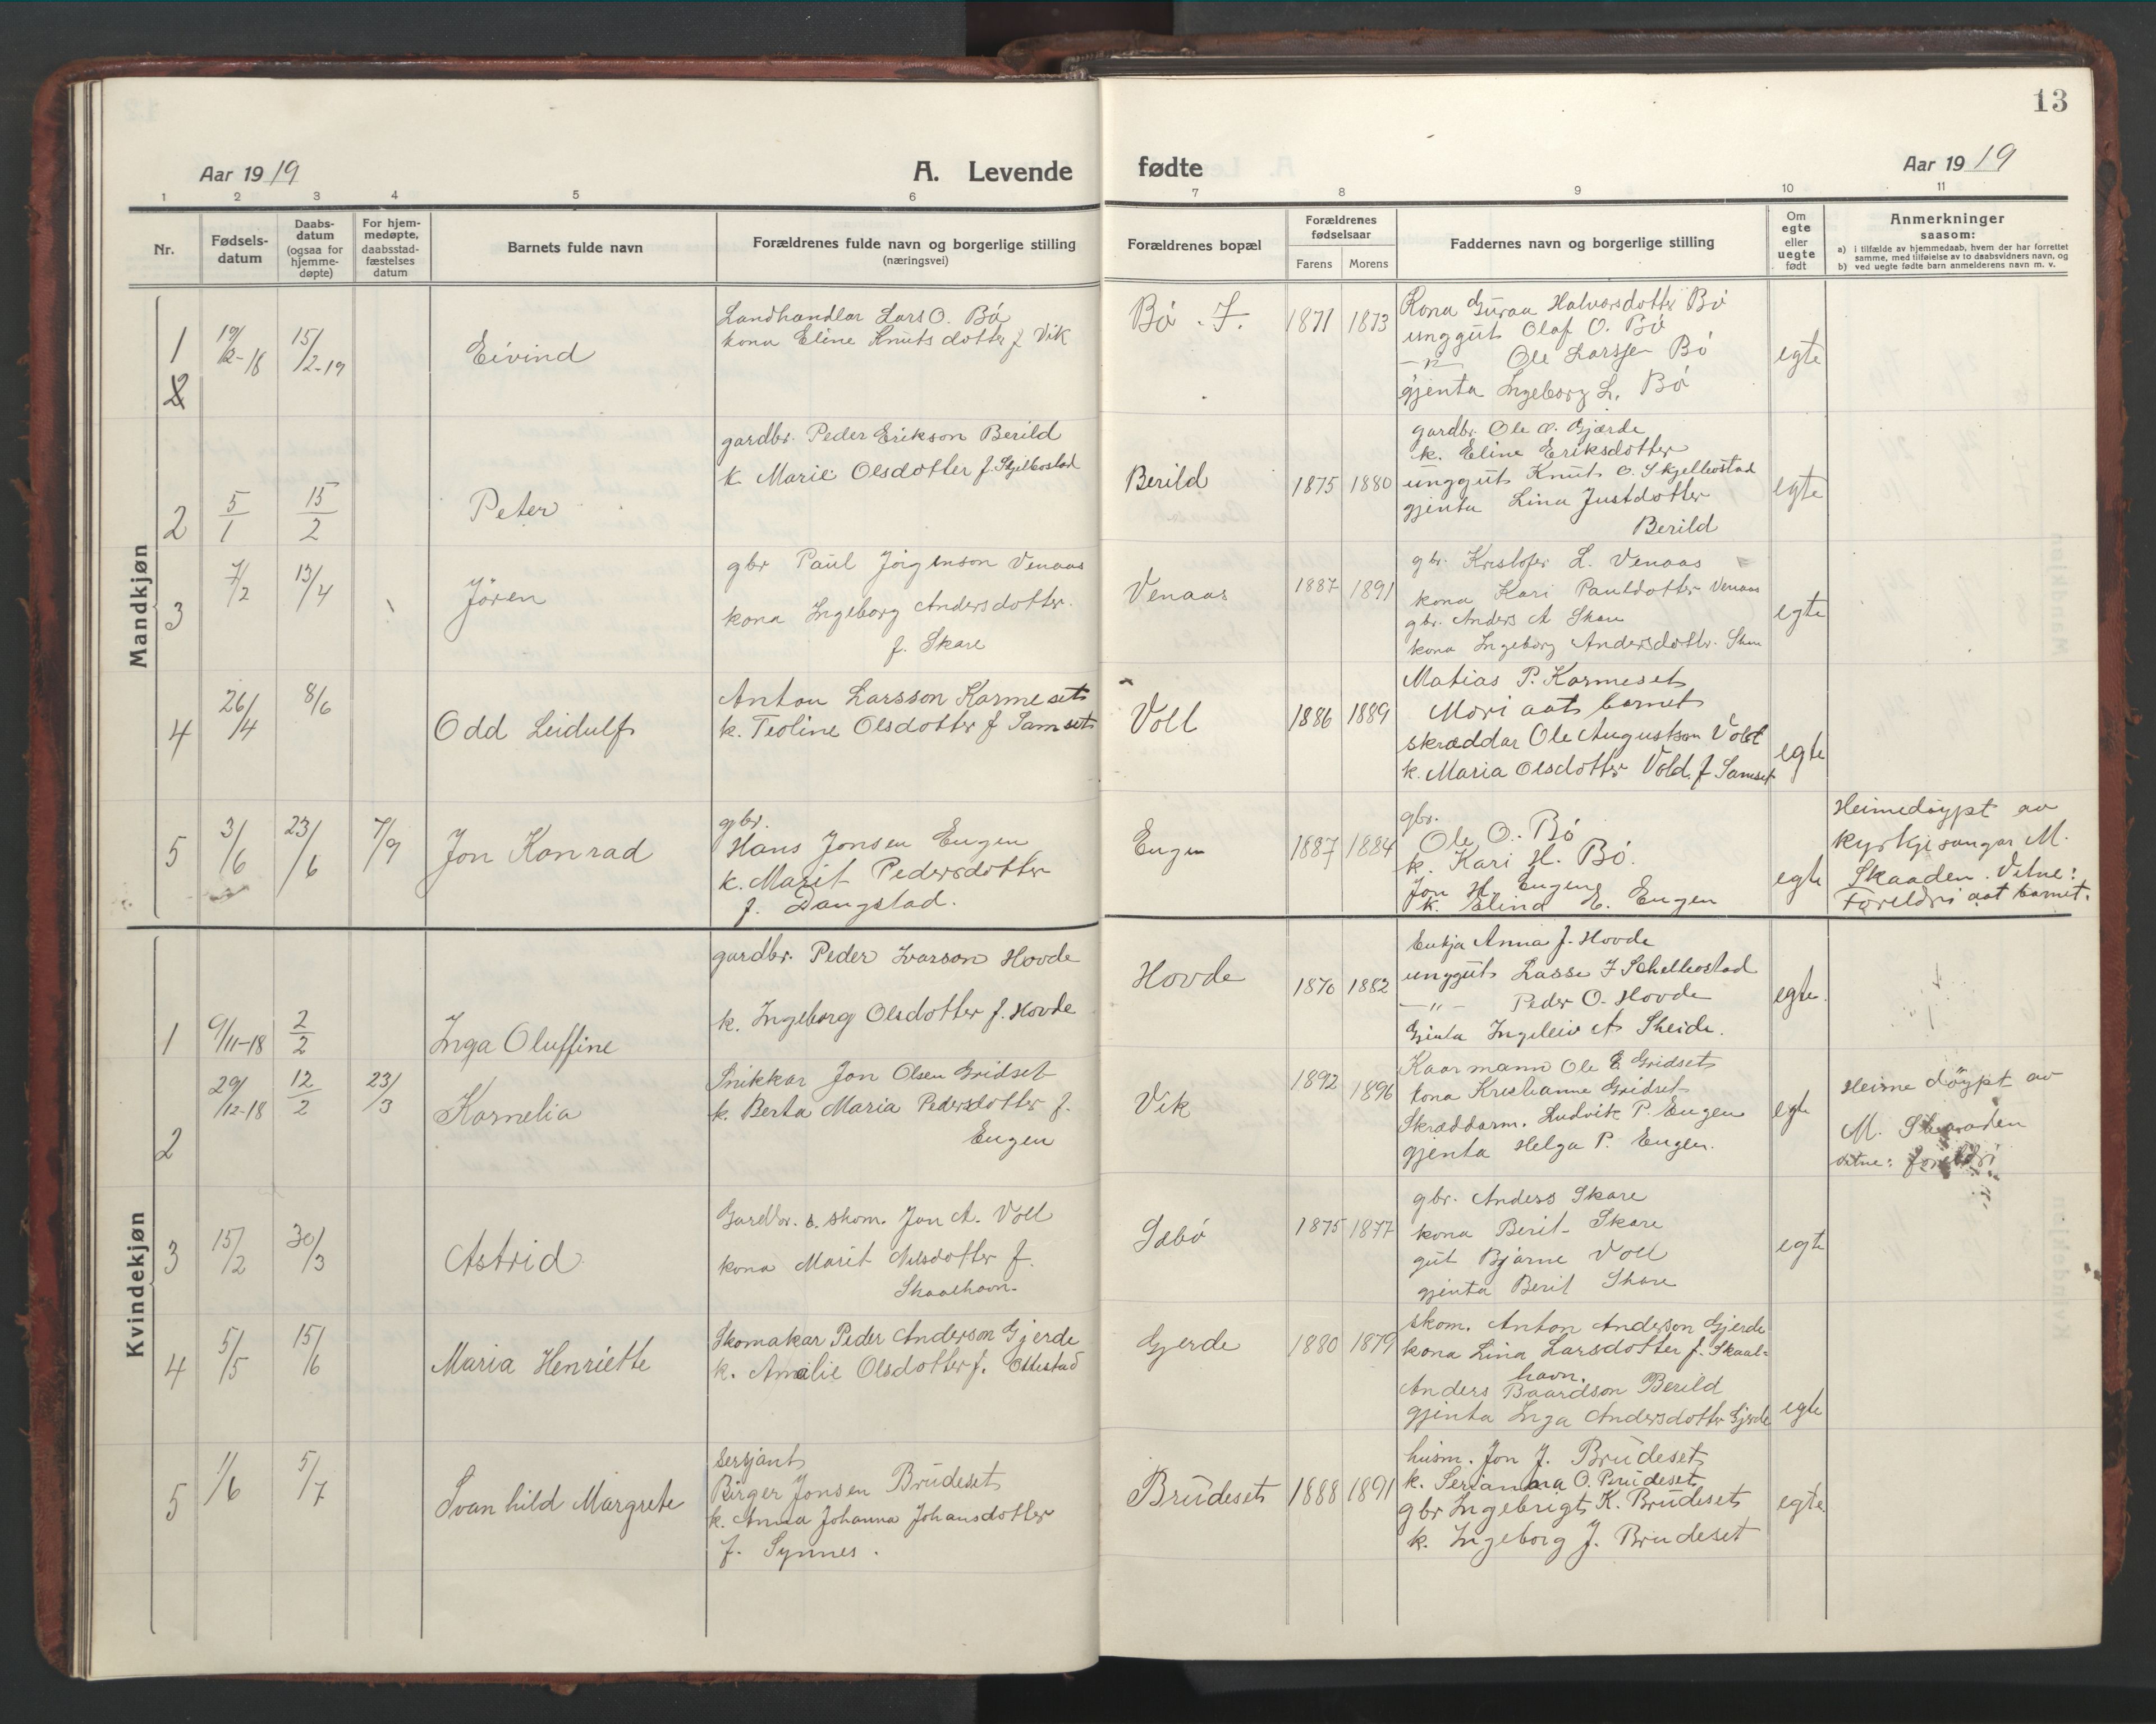 13
Aar 1919
A. Levende fødte
Aar 1919
1 2 3 4 5 6 7 8 9 10 11
Nr.
Fødsels-
datum
Daabs-
datum
(ogsaa for
hjemme-
døpte)
For hjem-
medøpte,
daabsstad-
fæstelses
datum
Barnets fulde navn
Forældrenes fulde navn og borgerlige stilling
(næringsvei)
Forældrenes bopæl
Forældrenes
fødselsaar
Farens Morens
Faddernes navn og borgerlige stilling
Om
egte
eller
uegte
født
Anmerkninger
saasom:
a) i tilfælde av hjemmedaab, hvem der har forrettet
samme, med tilføielse av to daabsvidners navn, og
b) ved uegte fødte barn anmelderens navn m. v.
Mandkjøn
1
2
19/12-18
15/2-19
Eivind
Landhandlar Lars O. Bö
kona Eline Knutsdotter f Vik
Bö . I.
1871 1873
Kona Guraa Halvorsdotter Bö
unggut Olaf O. Bö
—"— Ole Larssen Bö
gjenta Ingeborg L. Bö
egte
2
5/1
15/2
Peter
gardbr. Peder Erikson Berild
k Marie Olsdotter f. Skjelbostad
Berild
1875 1880
gardbr. Ole O. Gjærde
k. Eline Eriksdotter
unggut Knut O. Skjelbostad
gjenta Lina Justdotter
Berild
egte
3
7/2
13/4
Jören
gbr Paul Jörgenson Venaas
kona Ingeborg Andersdotter.
f. Skare
Venaas
1887 1891
gbr. Kristofer L. Venaas
kona Kari Paulsdotter Venaas
gbr. Anders A Skare
kona Ingeborg Andersdotter.
egte
4
26/4
8/6
Odd Leidulf
Anton Larsson Karmeset
k. Teoline Olsdotter f Samset
Voll
1886 1889
Matias P. Karmeset
Mori aat barnet
skræddar Ole Augustson Vold
k. Maria Olsdotter Vold. f Samset
egte
5
3/6
23/6
7/9
Jon Konrad
gbr.
Hans Jonsen Eugen
k. Marit Pedersdotter
f. Dangstad.
Eugen
1887 1884
gbr.
Ole O. Bö
k. Kari H. Bö.
Jon H. Eugen
k. Elind E. Eugen
egte
Heimedöypt av
kyrkjesongar M.
Skaaden. Vitne:
Foreldri aat barnet.
Kvindekjøn
1
9/11-18
2/2
Inga Oluffine
gardbr. Peder Ivarson Hovde
k. Ingeborg Olsdotter f. Hovde
Hovde
1870 1882
Enkja Anna J. Hovde
unggut Lasse I Schelbostad
—"— Peder O. Hovde
Gjenta Ingeleiv A Skeide.
egte.
2
29/12-18
12/2
23/3
Kornelia
Snikkar Jon Olsen Gridset
k. Berta Maria Pedersdotter f.
Eugen
Vik
1892 1896
Kaarmann Ole E Gridset
kona Kristianne Gridset
Skræddarm. Ludvik P. Eugen
gjenta Helga P. Eugen.
egte
Heime döypt av
M. Skaaden
vitne: foreldri
3
15/2
30/3
Astrid
Gardbr. o. skom. Jon A. Voll
kona Marit Nilsdotter f.
Skaalhavn.
Sæbö
1875 1877
gbr. Anders Skare
kona Berit Skare
gut Bjarne Voll
gjenta Berit Skare
egte
4
5/5
15/6
Maria Henriette
Skomakar Peder Anderson Gjerde
k. Amalie Olsdotter f. Ottestad
Gjerde
1880 1879
skom. Anton Anderson Gjerde
kona Lina Larsdotter f. Skaal-
havn.
Anders Baardson Berild
gjenta Inga Andersdotter Gjerde
egte
5
1/6
5/7
Svanhild Margrete
Sersjant
Birger Jonsen Brudeset
k. Anna Johanna Johansdotter
f. Synnes.
Brudeset
1888 1891
husm. Jon J. Brudeset
k. Serianna O. Brudeset
gbr Ingebrigt K. Brudeset
k. Ingeborg J. Brudeset
egte.